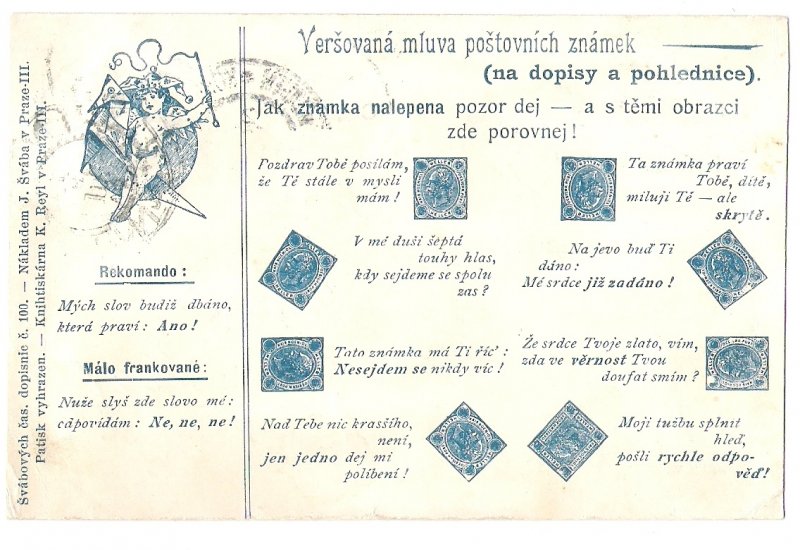 Švábových čas. dopisnic č. 100. — Nákladem J. Švába v Praze-III.
Patisk vyhrazen. — Knihtiskárna K. Reyl v Praze-III.
Rekomando:
Mých slov budiž dbáno,
která praví: Ano!
Málo frankované:
Nuže slyš zde slovo mé:
odpovídám: Ne, ne, ne!
Veršovaná mluva poštovních známek
(na dopisy a pohlednice).
Jak známka nalepena pozor dej — a s těmi obrazci
zde porovnej!
Pozdrav Tobě posílám,
že Tě stále v mysli
mám!
Ta známka praví
Tobě, dítě,
miluji Tě — ale
skrytě.
V mé duši šeptá
touhy hlas,
kdy sejdeme se spolu
zas?
Na jevo buď Ti
dáno:
Mé srdce již zadáno!
Tato známka má Ti říc':
Nesejdem se nikdy víc!
Že srdce Tvoje zlato, vím,
zda ve věrnost Tvou
doufat smím?
Nad Tebe nic krassího,
není,
jen jedno dej mi
políbení!
Moji tužbu splnit
hleď,
pošli rychle odpo-
věď!